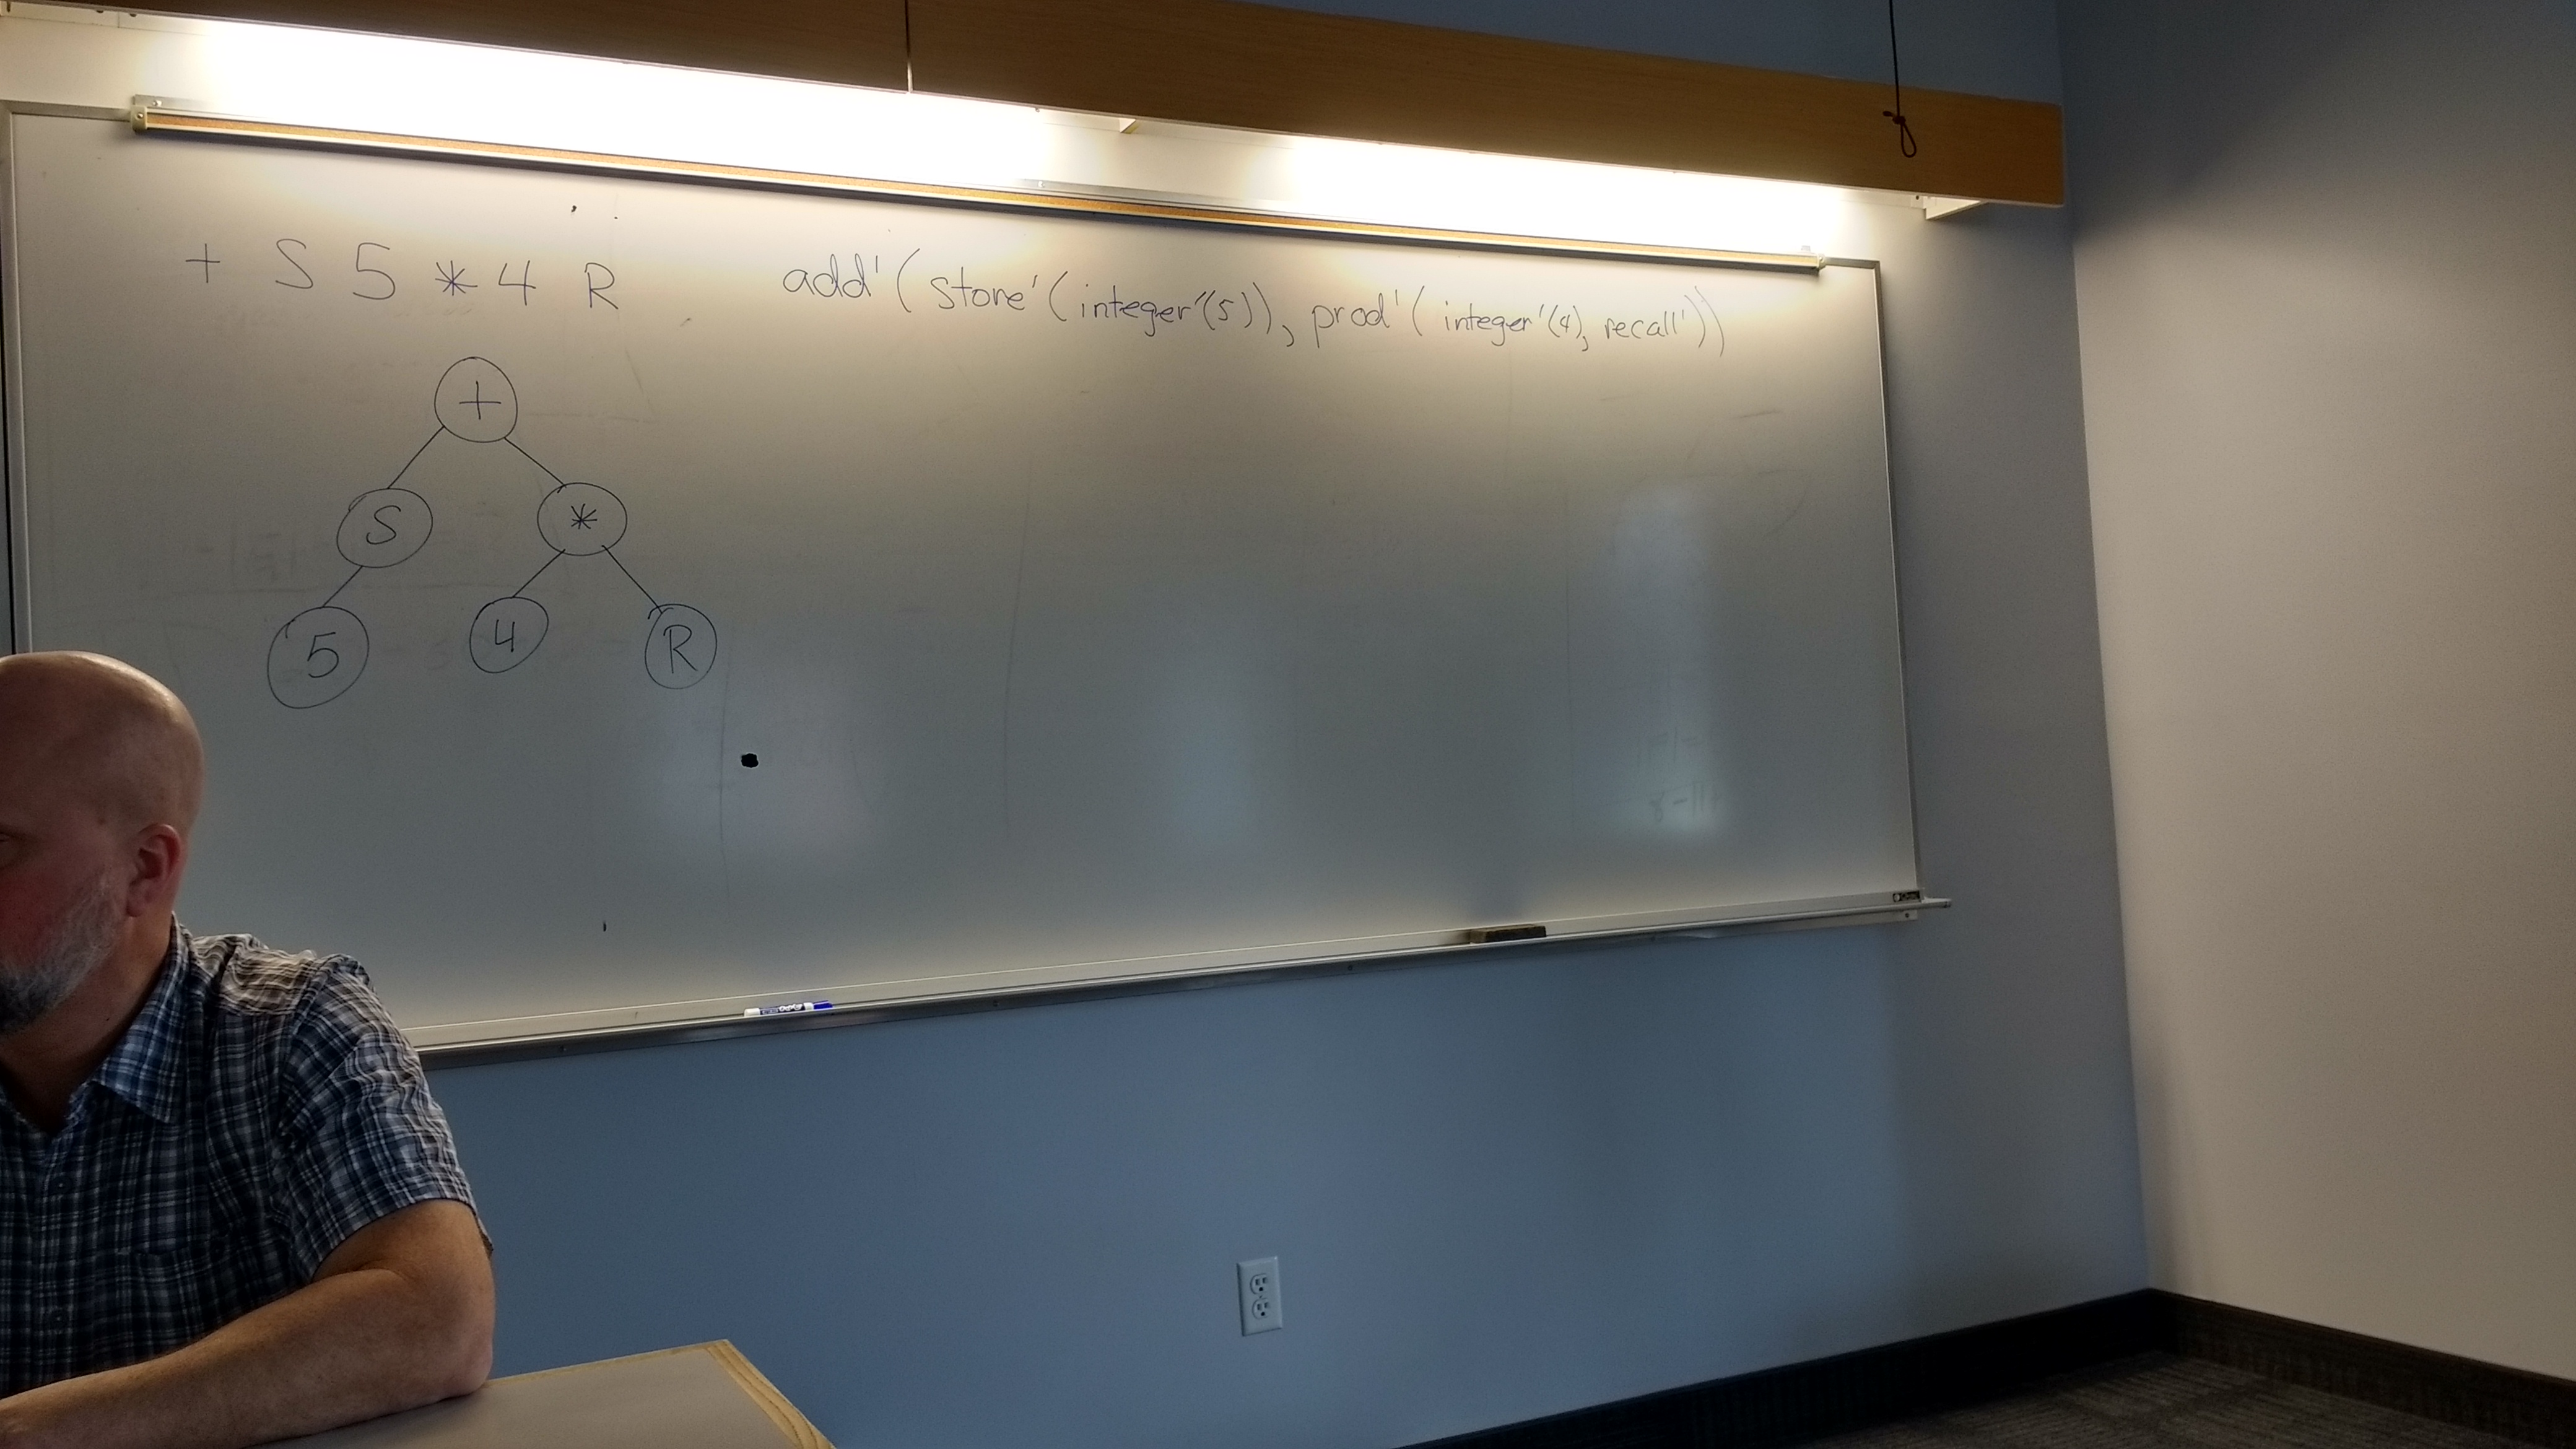 + S 5 * 4 R
add'(store'(integer'(5)), prod'(integer'(4), recall'))
+
S *
5 4 R